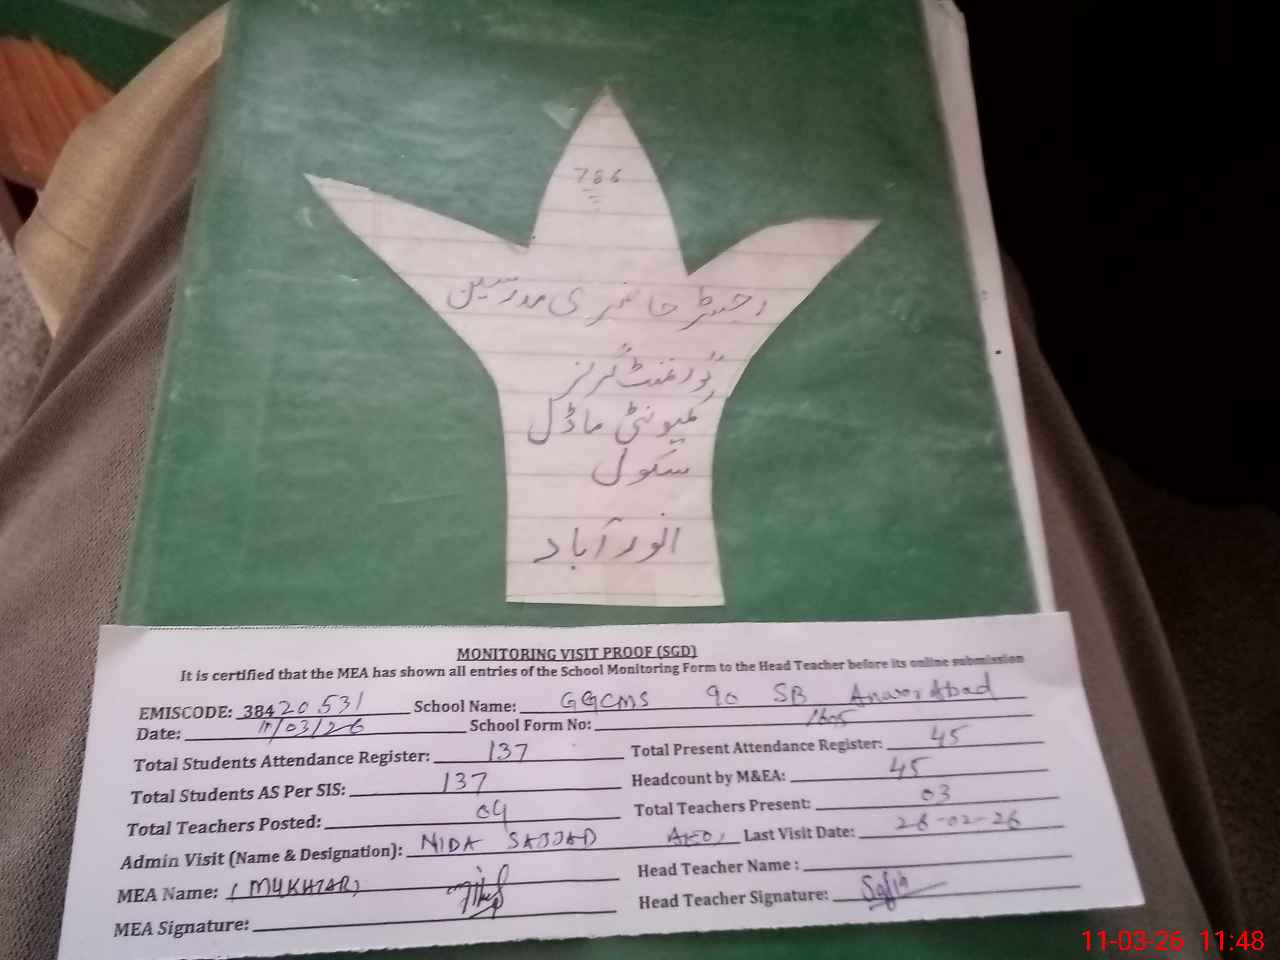 786
رجسٹر حاضری مدرسین
گورنمنٹ گرلز
کمیونٹی ماڈل
سکول
انور آباد
MONITORING VISIT PROOF (SGD)
It is certified that the MEA has shown all entries of the School Monitoring Form to the Head Teacher before its online submission
EMISCODE: 38420531 School Name: GGCMS 90 SB Anwar Abad
Date: 11/03/26 School Form No:
Total Students Attendance Register: 137 Total Present Attendance Register: 45
Total Students AS Per SIS: 137 Headcount by M&EA: 45
Total Teachers Posted: 04 Total Teachers Present: 03
Admin Visit (Name & Designation): NIDA SAJJAD AEO, Last Visit Date: 26-02-26
MEA Name: (MUKHTAR) Head Teacher Name :
MEA Signature: Head Teacher Signature:
11-03-26 11:48